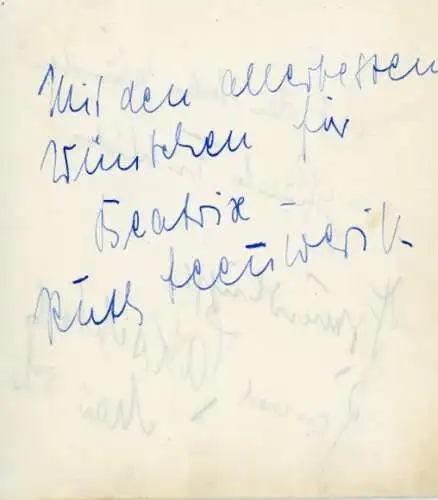 Mit den allerbesten
Wünschen für
Beatrix –
Ruth Leeuwerik